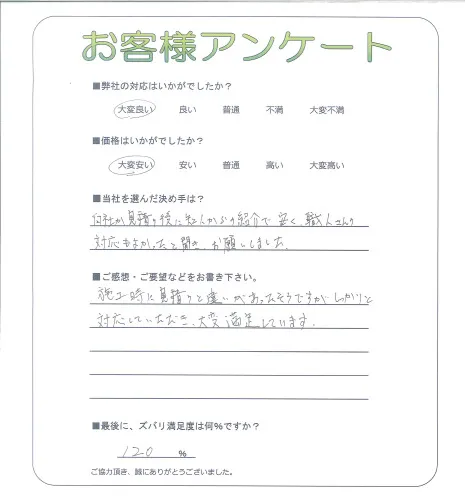 お客様アンケート
■弊社の対応はいかがでしたか？
大変良い 良い 普通 不満 大変不満
■価格はいかがでしたか？
大変安い 安い 普通 高い 大変高い
■当社を選んだ決め手は？
何社か見積り後に知人からの紹介で安く、職人さんの
対応もよかったと聞き、お願いしました。
■ご感想・ご要望などをお書き下さい。
施工時に見積りと違いがあったそうですがしっかりと
対応していただき、大変満足しています。
■最後に、ズバリ満足度は何%ですか？
120 %
ご協力頂き、誠にありがとうございました。